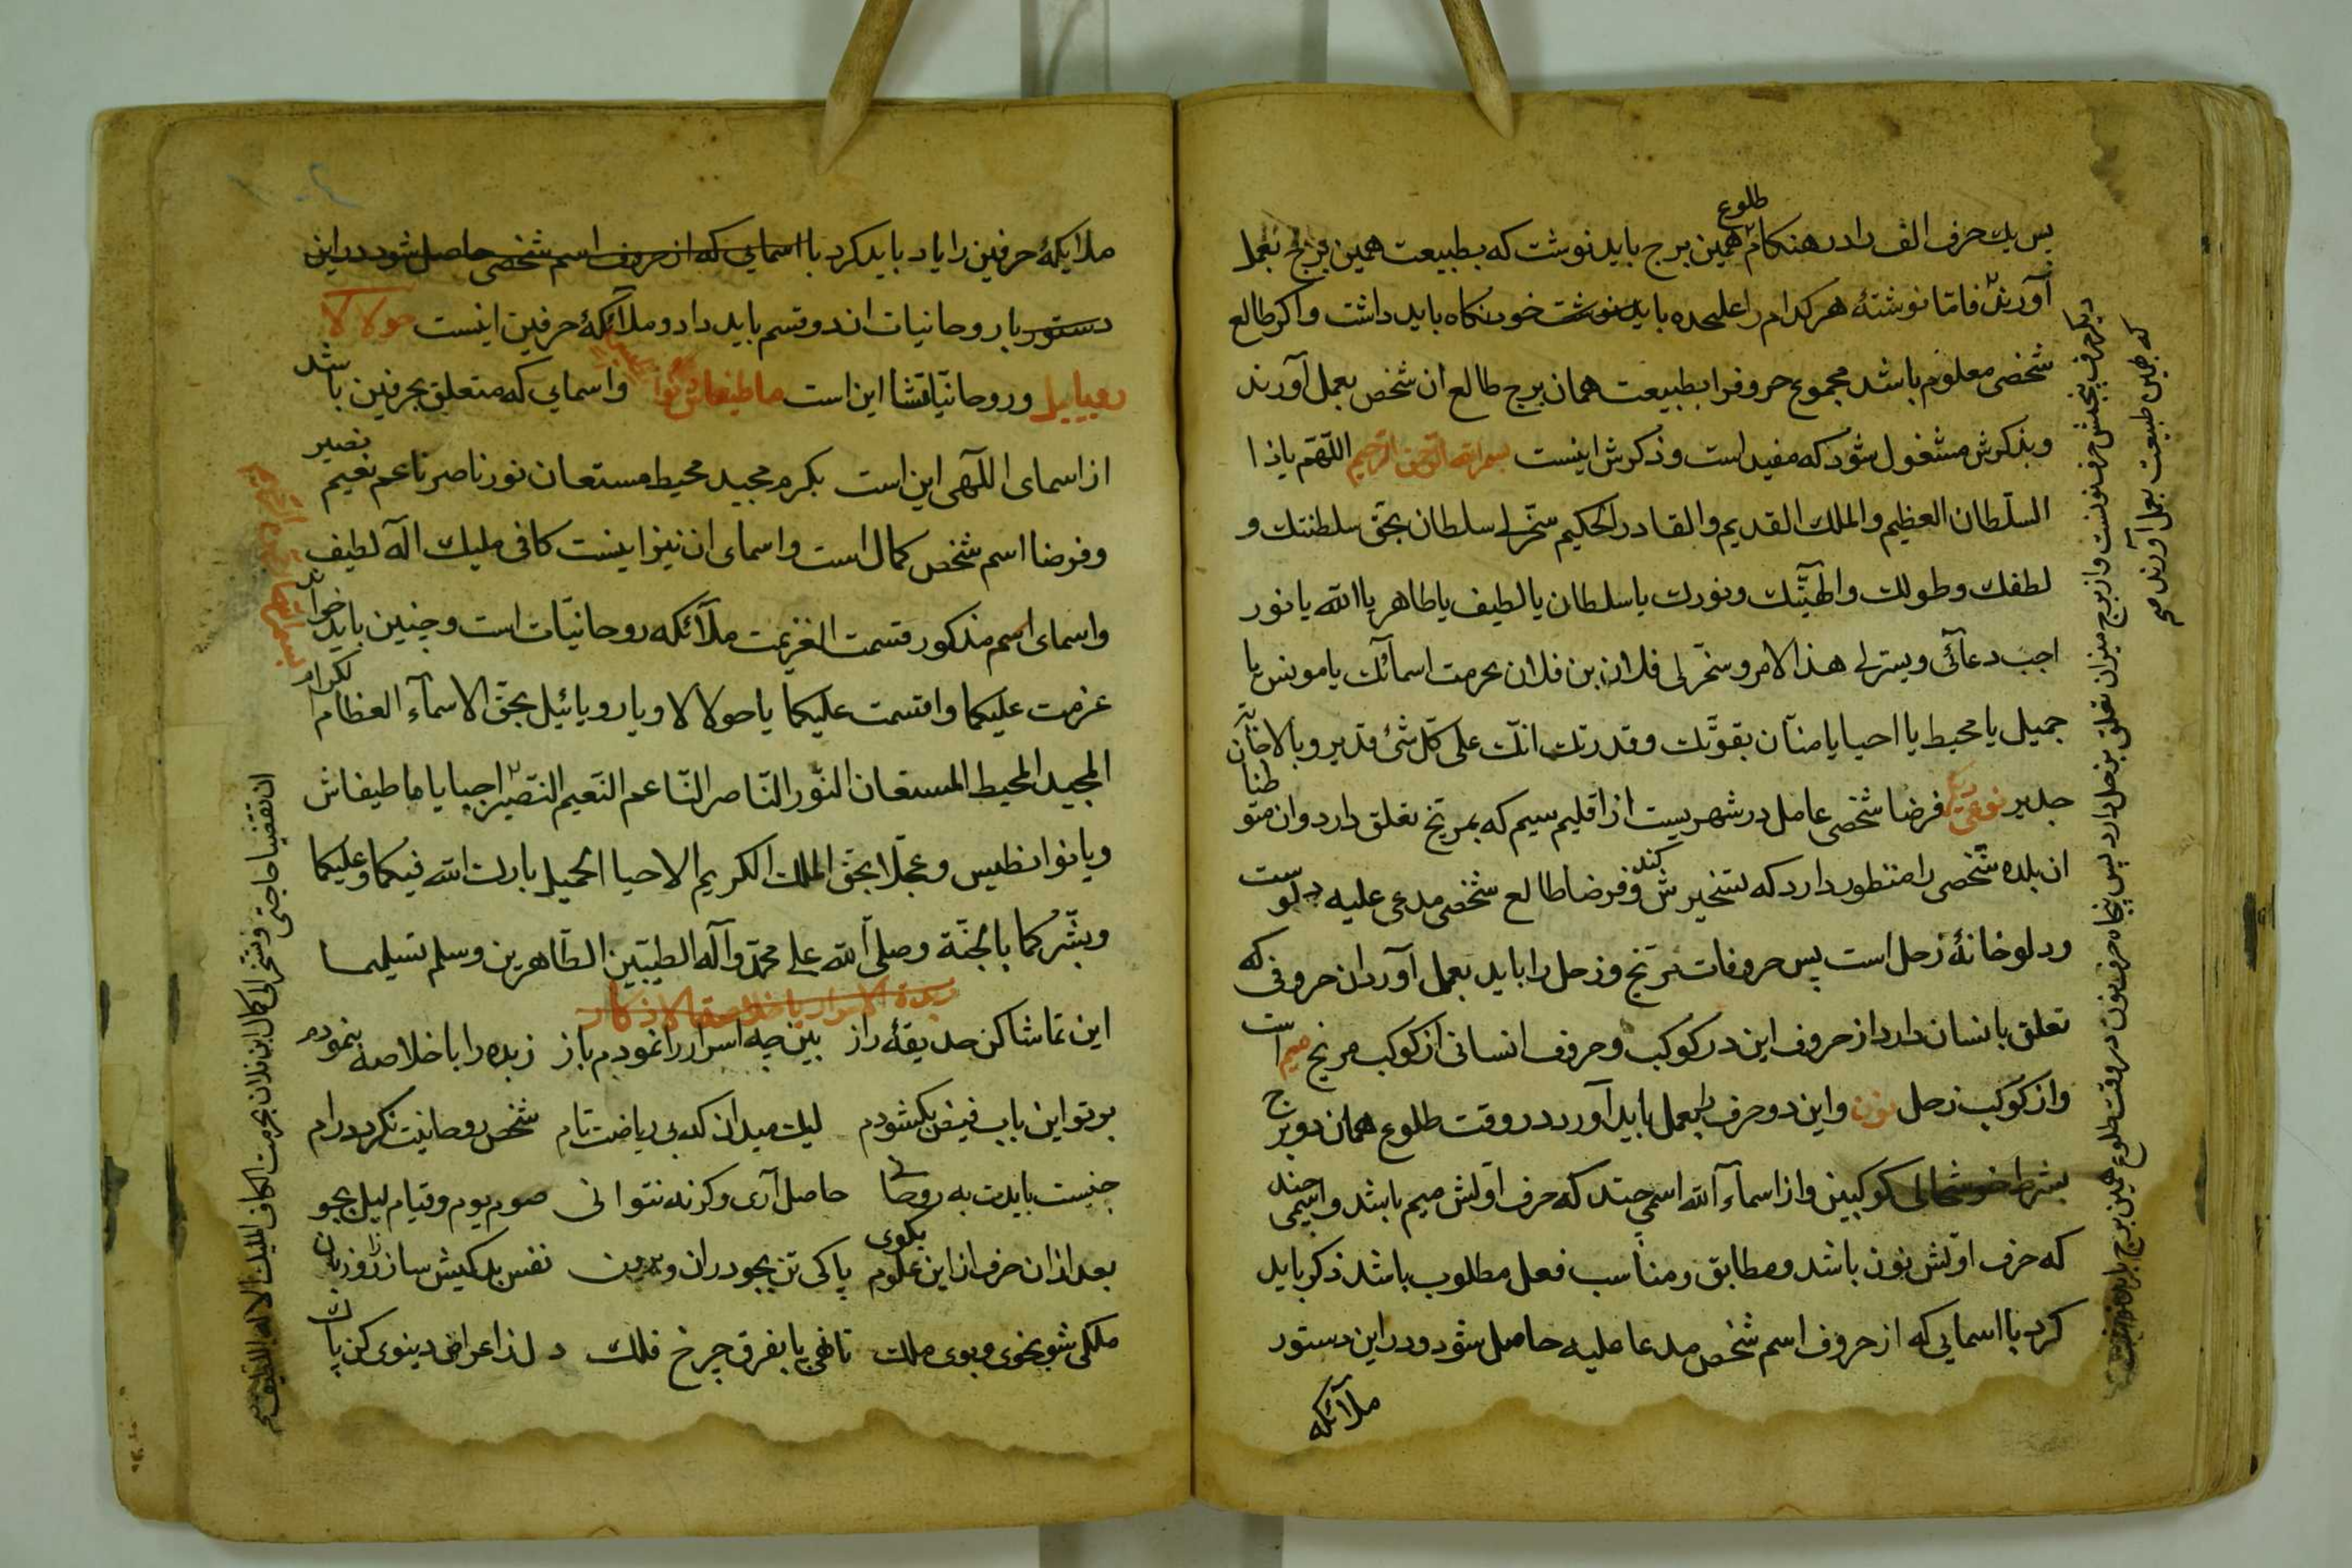 پس یك حرف الف را در هنكام طلوع همین برج باید نوشت كه بطبیعت همین برج بعمل
آورند فامّا نوشتهٔ هر كدام را علیحده باید نوشت خود نكاه باید داشت و اكر طالع
شخصی معلوم باشد مجموع حروفرا بطبیعت همان برج طالع ان شخص بعمل آورند
و بذكرش مشغول شود كه مفید است و ذكرش اینست بسم الله الرّحمن الرّحیم اللّهمّ یا ذا
السّلطان العظیم والملك القدیم والقادر الحكیم سخّر لی سلطان بحقّ سلطنتك و
لطفك وطولك والهیّتك ونورك یا سلطان یا لطیف یا طاهر یا الله یا نور
اجب دعائی ویسّر لی هذا الامر وسخّر لی فلان بن فلان بحرمت اسمائك یا مونس یا
جمیل یا محیط یا احیا یا منّان بقوّتك وقدرتك انّك علی كلّ شئ قدیر وبالاجابة
جدیر نوعی دیكر فرضا شخصی عامل در شهریست از اقلیم سیم كه بمریخ تعلق دارد وان متوطنان
ان بلده شخصی را منظور دارد كه تسخیرش كند و فرضا طالع شخصی مدعی علیه دلوست
ودلو خانهٔ زحل است پس حروفات مریخ و زحل را باید بعمل آورد ان حروفی كه
تعلق بانسان دارد از حروف این در كوكب و حروف انسانی از كوكب مریخ میم است
واز كوكب زحل نون واین دو حرف را بعمل باید آورد در وقت طلوع همان دو برج
بشرط خوشحالی كوكبین واز اسماء الله اسمی چند كه حرف اوّلش میم باشد واسمی چند
كه حرف اوّلش نون باشد ومطابق ومناسب فعل مطلوب باشد ذكر باید
كرد با اسمایی كه از حروف اسم شخص مدعا علیه حاصل شود ودر این دستور
ملائكه
كه بهمین طبیعت بعمل آورند صح
ملایكهٔ حرفین را یاد باید كرد با اسمایی كه از حروف اسم شخصی حاصل شود در این
دستور با روحانیات اند وقسم باید داد وملائكهٔ حرفین اینست حولا لا
رویاییل وروحانیّاتشا این است ماطیفاش واسمایی كه متعلق بحرفین باشد
از اسمای اللّهی این است بكرم مجید محیط مستعان نور ناصر ناعم نعیم نصیر
وفرضا اسم شخص كمال است واسمای ان نیز اینست كافی ملیك اله لطیف
واسمای اسم مذكور قسمت العزیمت ملائكه روحانیّات است وچنین باید خواند
عزمت علیكما واقسمت علیكما یا حولا لا ویا رویائیل بحقّ الاسماء العظام الكرام
المجید المحیط المستعان النّور النّاصر النّاعم النّعیم النّصیر اجیبا یا ماطیفاش
ویا نوانطیس وعجّلا بحق الملك الكریم الاحیا الجمیل بارك الله فیكما وعلیكما
وبشّركما بالجنّة وصلّی الله علی محمّد وآله الطیّبین الطّاهرین وسلم تسلیما
زبدة الاسرار یا خلاصة الاذكار
این تماشا كن حدیقهٔ راز ببین چه اسرار را نمودم باز زبده را با خلاصه بنمودم
بر تو این باب فیض بكشودم لیك میدان كه بی ریاضت تام شخص روحانیت نكردد رام
جنست بایدت به روحانی حاصل آری وكرنه نتوانی صوم یوم وقیام لیل بجو
بعد ازان حرف از این علوم بكوی پاكی تن بجو دران وبرون نفس بدكیش ساز زار وزبان
ملكی شو بخوی وبوی ملك تا نهی پا بفرق چرخ فلك دل ز اعراض دینوی كن پاك
بسم الله الرّحمن الرّحیم